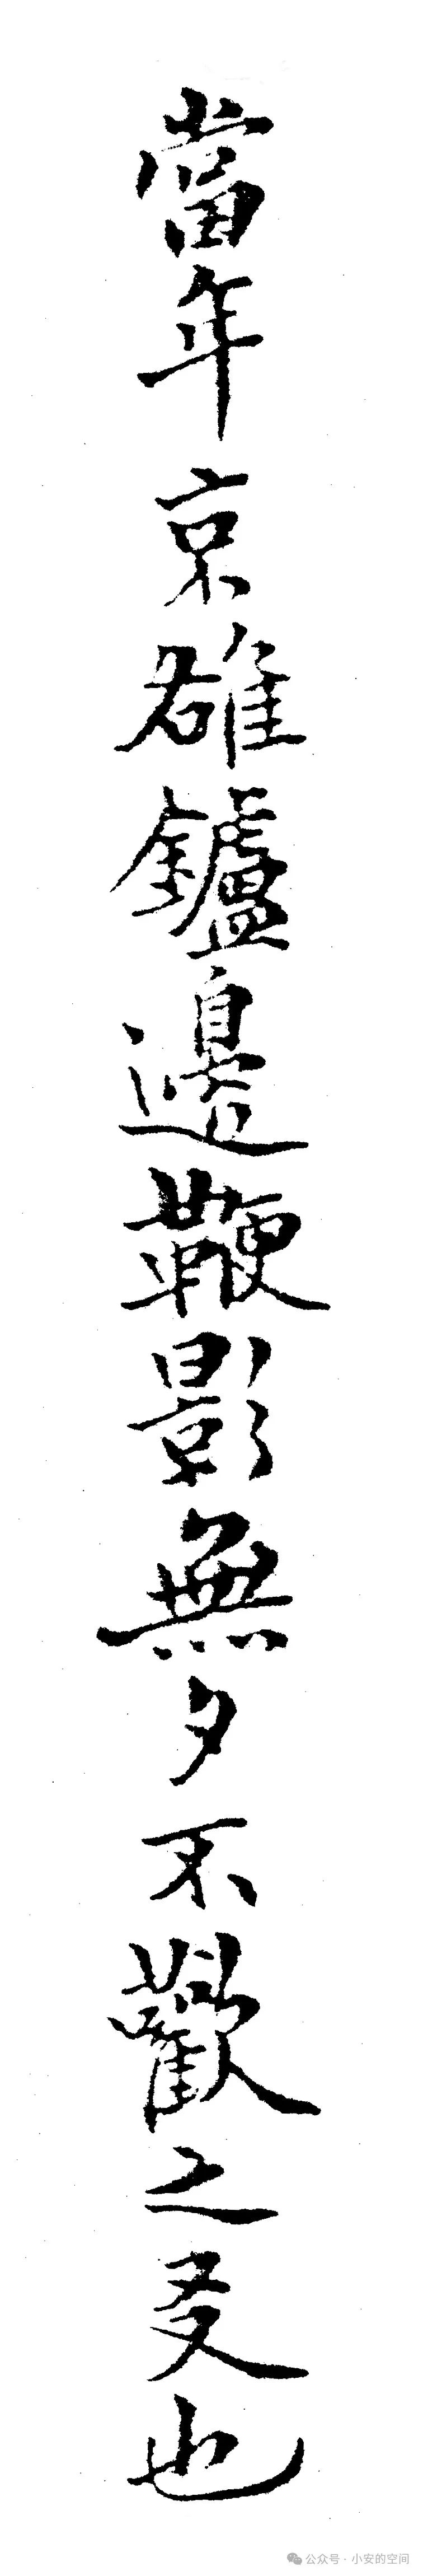 當年京雒鑪邊鞭影無夕不歡之友也
公众号 · 小安的空间